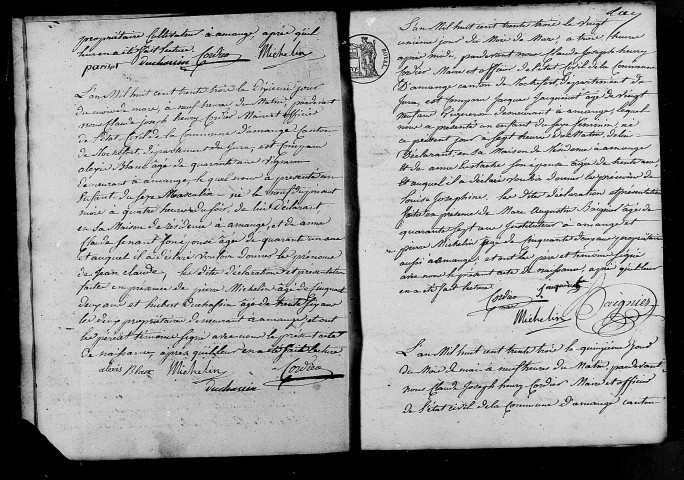 propriétaire Cultivateur à amange après qu'il
leur en a été fait lecture Cordier Michelin
pariset Duchassin
L'an Mil huit cent trente trois le dixieme jour
du mois de mars, à neuf heures du Matin, pardevant
nous Claude Joseph henry Cordier Maire et officier
de l'État Civil de la Commune d'amange Canton
de Rochefort, département du Jura, est Comparu
alexis Blanc âgé de quarante ans Vigneron
demeurant à amange, lequel nous a présenté un
Enfant du sexe Masculin né le neuf du présent
mois à quatre heures du soir, de lui Déclarant
en sa Maison de résidence à amange, et de anne
Claude son Épouse âgé de quarante un ans
et auquel il a déclaré Vouloir donner le prénoms
de Jean Claude, les dite déclaration et présentation
faites en présence de pierre Michelin âgé de Cinquante
deux ans et hubert Duchassin âgé de trente six ans
les deux propriétaire demeurant à amange, et ont
les père et témoins signé avec nous le présent acte
de naissance, après qu'il leur en a été fait lecture
alexis Blanc Michelin Cordier
Duchassin
L'an Mil huit cent trente trois le vingt
unième jour de Mois de Mars, à trois heures
après midi, pardevant nous Claude Joseph henry
Cordier Maire et officier de l'état Civil de la Commune
D'amange canton de Rochefort, département du
Jura, est Comparu Jacques Jacquinot âgé de Vingt
Neuf ans Vigneron demeurant à amange, lequel
nous a présenté un enfant du sexe féminin, né
ce présent jour à sept heures du Matin, de lui
Déclarant en sa Maison de Résidence à amange
et de anne Eustache son épouse âgé de trente ans
et auquel il a déclaré Vouloir donner les prénoms de
Louise Josephine, les dites déclaration et présentation
faites en présence de Marc Augustin Saignier âgé de
quarante Sept ans Instituteur à amange et
pierre Michelin âgé de Cinquante deux ans, propriétaire
aussi à amange, et ont les père et témoins signé
avec nous le présent acte de naissance, après qu'il leur
en a été fait lecture.
Cordier Jacquinot
Michelin Saignier
L'an Mil huit cent trente trois le quinzième jour
du Mois de mai à neuf heures du Matin, pardevant
nous Claude Joseph henry Cordier Maire et officier
de l'état civil de la Commune d'amange canton